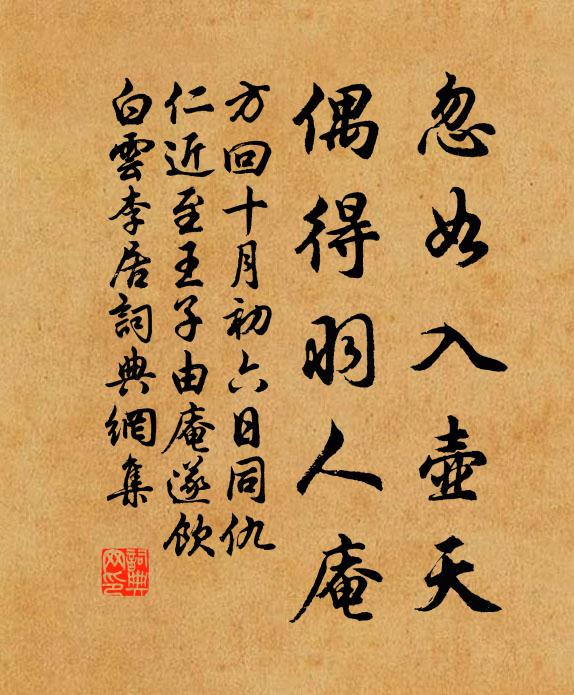 忽如入壺天
偶得羽人庵
方回十月初六日同仇
仁近至王子由庵遂飲
白雲李居詞典網集
詞典网印